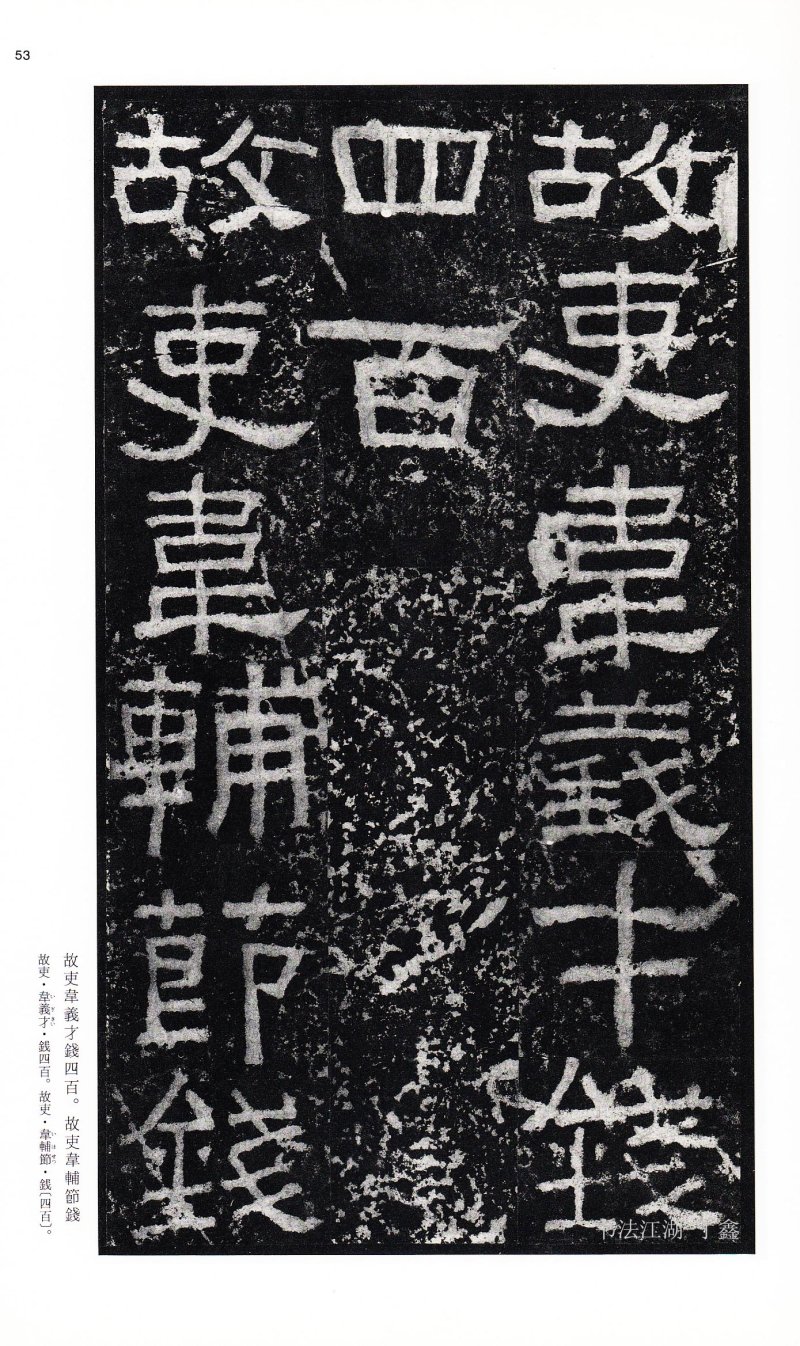 53
故吏韋義才錢
四百
故吏韋輔節錢
故吏韋義才錢四百。故吏韋輔節錢
故吏・韋義才・銭四百。故吏・韋輔節・銭〔四百〕。
书法江湖 丁鑫